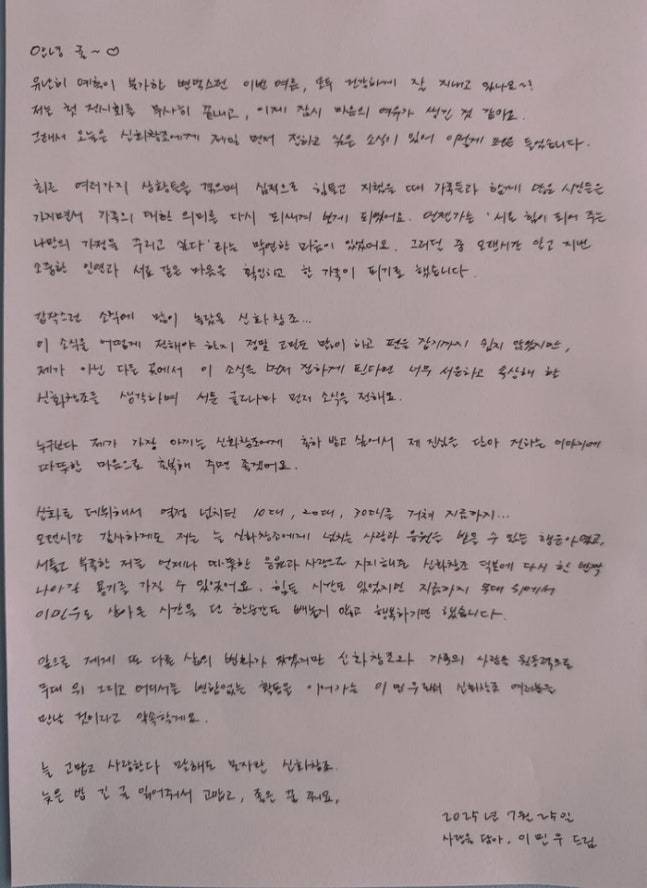 안녕 귤~♡
유난히 예측이 불가한 변덕스런 이번 여름, 모두 건강하게 잘 지내고 있나요~?
저는 첫 전시회를 무사히 끝내고, 이제 잠시 마음의 여유가 생긴 것 같아요.
그래서 오늘은 신화창조에게 제일 먼저 전하고 싶은 소식이 있어 이렇게 펜을 들었습니다.
최근 여러가지 상황들을 겪으며 심적으로 힘들고 지쳤을 때 가족들과 함께 많은 시간들을
가지면서 가족의 대한 의미를 다시 되새겨 보게 되었어요. 언젠가는 '서로 힘이 되어 주는
나만의 가정을 꾸리고 싶다'라는 막연한 마음이 있었어요. 그러던 중 오랜시간 알고 지낸
소중한 인연과 서로 같은 마음을 확인하고 한 가족이 되기로 했습니다.
갑작스런 소식에 많이 놀랐을 신화창조...
이 소식을 어떻게 전해야 할지 정말 고민도 많이 하고 펜을 잡기까지 쉽지 않았지만,
제가 아닌 다른 곳에서 이 소식을 먼저 접하게 된다면 너무 서운하고 속상해 할
신화창조를 생각하며 서툰 글로나마 먼저 소식을 전해요.
누구보다 제가 가장 아끼는 신화창조에게 축하 받고 싶어서 제 진심을 담아 전하는 이야기에
따뜻한 마음으로 축복해 주면 좋겠어요.
신화로 데뷔해서 열정 넘치던 10대, 20대, 30대를 거쳐 지금까지...
오랜시간 감사하게도 저는 늘 신화창조에게 넘치는 사랑과 응원을 받을 수 있는 행운아였고,
서툴고 부족한 저를 언제나 따뜻한 응원과 사랑으로 지지해준 신화창조 덕분에 다시 한 발짝
나아갈 용기를 가질 수 있었어요. 힘든 시간도 있었지만 지금까지 무대 위에서
이민우로 살아온 시간을 단 한순간도 빼놓지 않고 행복하기만 했습니다.
앞으로 제게 또 다른 삶의 변화가 찾아왔지만 신화창조와 가족의 사랑을 원동력으로
무대 위 그리고 어디서든 변함없는 활동을 이어가는 이민우로써 신화창조 여러분을
만날 것이라고 약속할게요.
늘 고맙고 사랑한다 말해도 모자란 신화창조.
늦은 밤 긴 글 읽어줘서 고맙고, 좋은 꿈 꿔요.
2025년 7월 25일
사랑을 담아. 이민우 드림